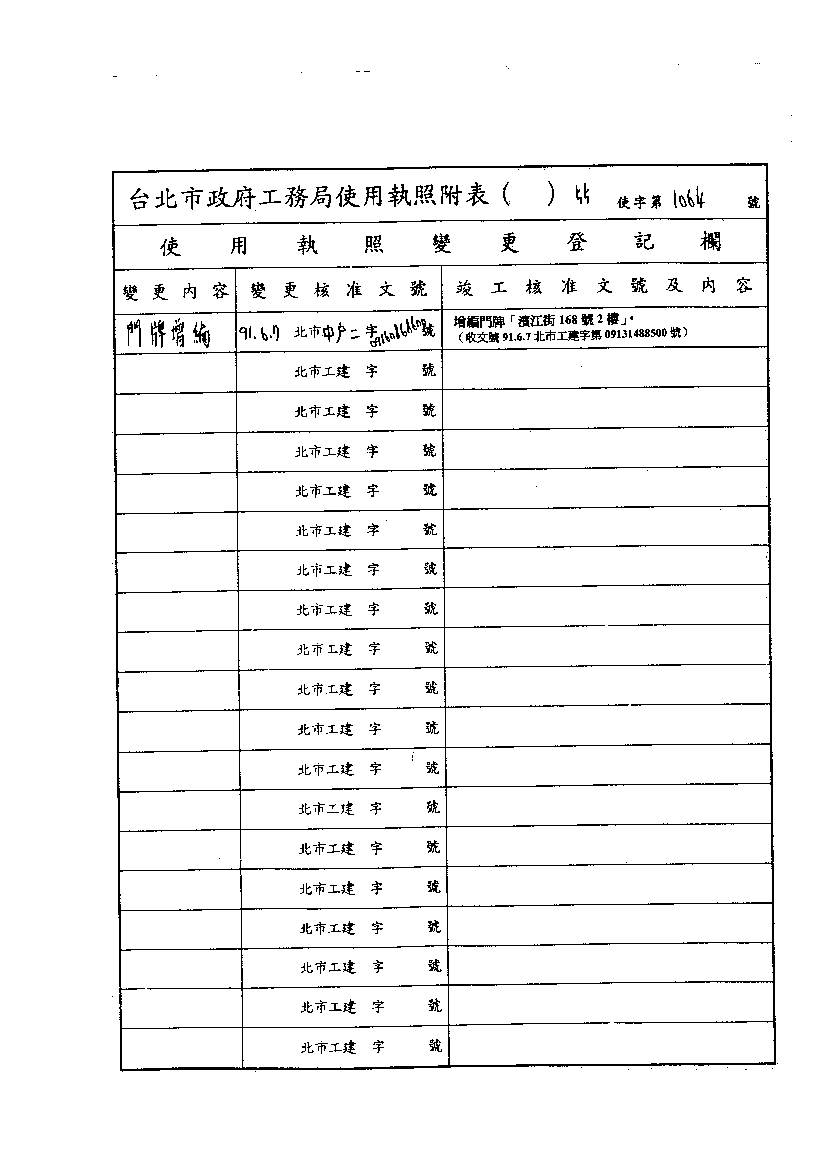 台北市政府工務局使用執照附表（ ）55 使字第1064號
使用執照變更登記欄
變更內容 變更核准文號 竣工核准文號及內容
門牌增編 91.6.7 北市中戶二字 號 增編門牌「濱江街168號2樓」。
（收文號91.6.7北市工建字第09131488500號）
北市工建 字 號
北市工建 字 號
北市工建 字 號
北市工建 字 號
北市工建 字 號
北市工建 字 號
北市工建 字 號
北市工建 字 號
北市工建 字 號
北市工建 字 號
北市工建 字 號
北市工建 字 號
北市工建 字 號
北市工建 字 號
北市工建 字 號
北市工建 字 號
北市工建 字 號
北市工建 字 號